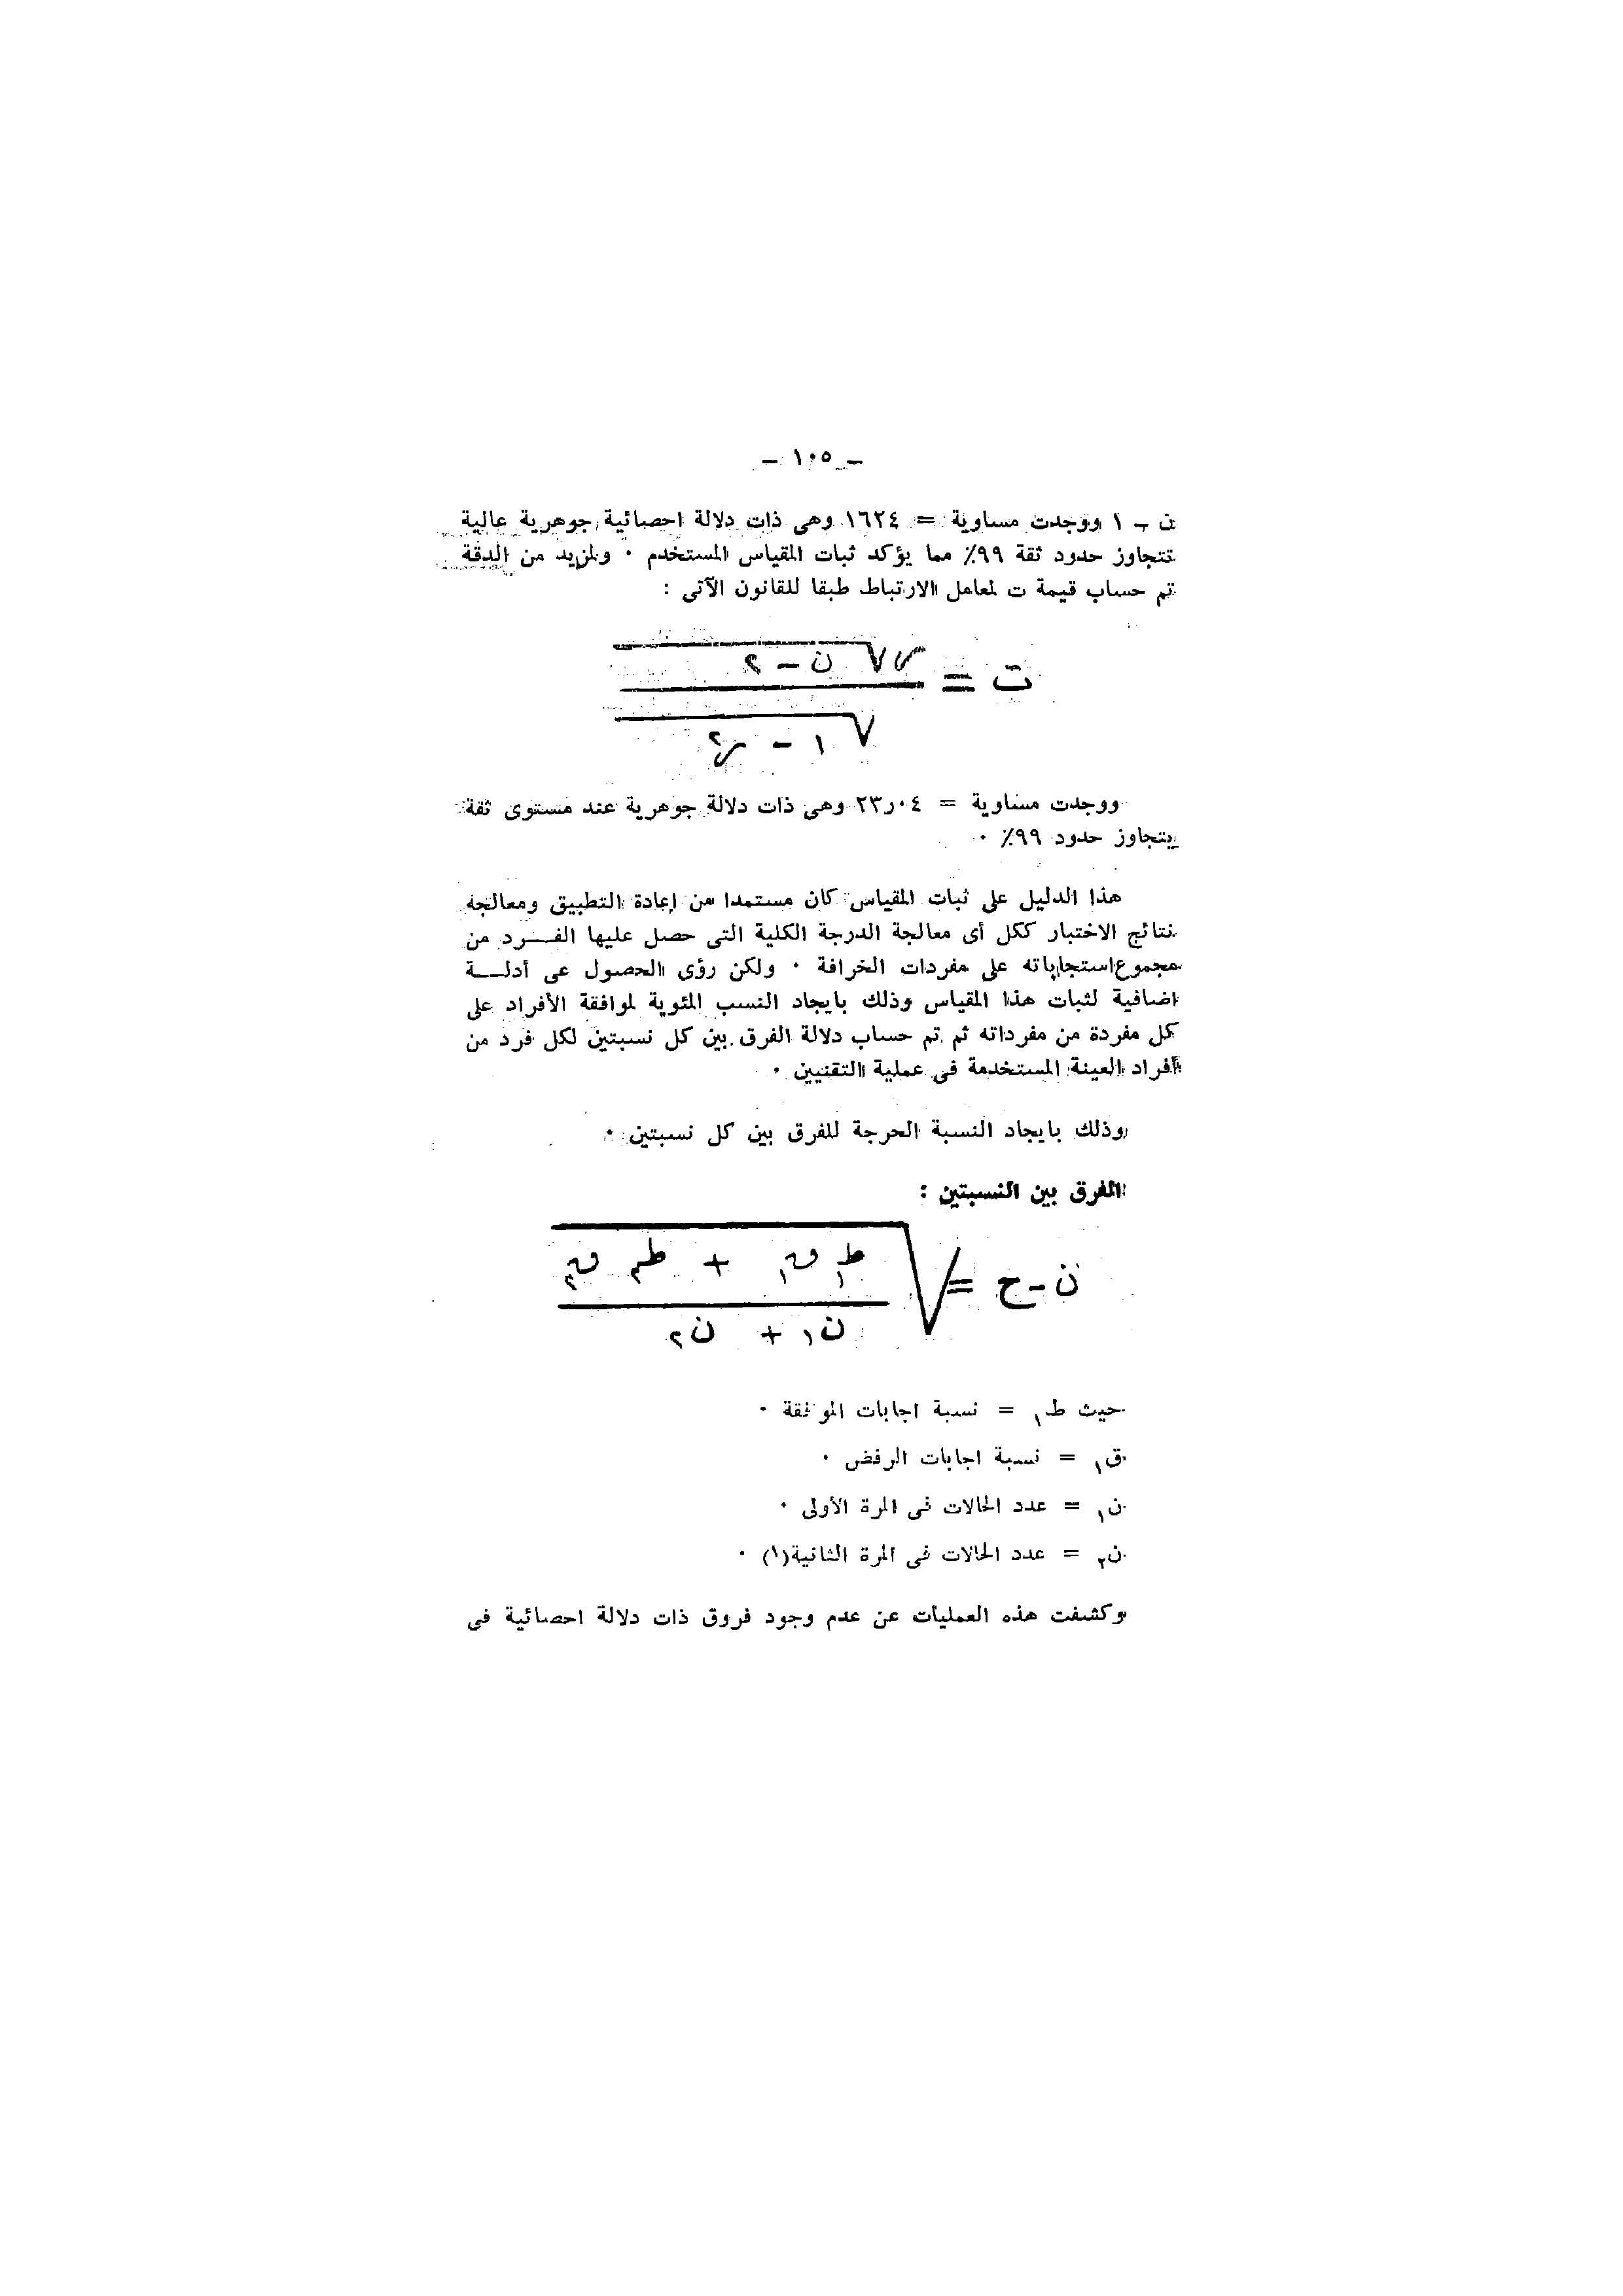 ـ ١٠٥ ـ
ن ـ ١ ووجدت مساوية = ١٦٢٤ وهى ذات دلالة احصائية جوهرية عالية
تتجاوز حدود ثقة ٩٩٪ مما يؤكد ثبات المقياس المستخدم ٠ ولمزيد من الدقة
تم حساب قيمة ت لمعامل الارتباط طبقا للقانون الآتى :
ت = ر √ ن - ٢
√ ١ - ر٢
ووجدت مساوية = ٠٤ر٢٣ وهى ذات دلالة جوهرية عند مستوى ثقة
يتجاوز حدود ٩٩٪ ٠
هذا الدليل على ثبات المقياس كان مستمدا من إعادة التطبيق ومعالجة
نتائج الاختبار ككل أى معالجة الدرجة الكلية التى حصل عليها الفـــرد من
مجموع استجاباته على مفردات الخرافة ٠ ولكن رؤى الحصول عى أدلـــة
اضافية لثبات هذا المقياس وذلك بايجاد النسب المئوية لموافقة الأفراد على
كل مفردة من مفرداته ثم تم حساب دلالة الفرق بين كل نسبتين لكل فرد من
أفراد العينة المستخدمة فى عملية التقنيين ٠
وذلك بايجاد النسبة الحرجة للفرق بين كل نسبتين ٠
الفرق بين النسبتين :
ن - ح = √ ط١ ق١ + ط٢ ق٢
ن١ + ن٢
حيث ط١ = نسبة اجابات الموافقة ٠
ق١ = نسبة اجابات الرفض ٠
ن١ = عدد الحالات فى المرة الأولى ٠
ن٢ = عدد الحالات فى المرة الثانية(١) ٠
وكشفت هذه العمليات عن عدم وجود فروق ذات دلالة احصائية فى